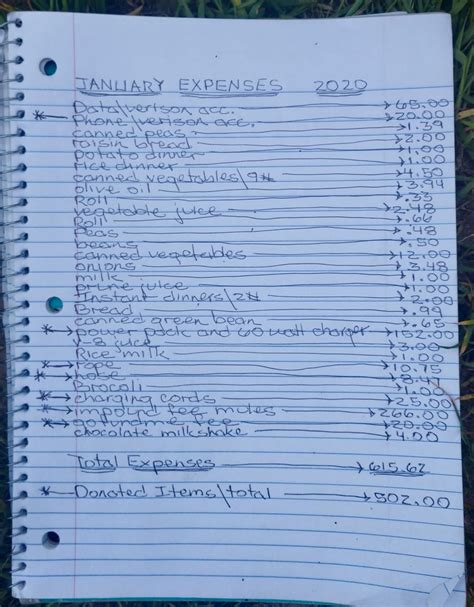 JANUARY EXPENSES 2020
Data/verison acc. → 65.00
* Phone/verison acc. → 20.00
canned peas → 1.39
raisin bread → 2.00
potato dinner → 1.00
rice dinner → 1.00
canned vegetables/9# → 4.50
olive oil → 3.94
Roll → .33
vegetable juice → 2.48
Roll → .66
Peas → .48
beans → .50
canned vegetables → 12.00
onions → 3.48
milk → 1.00
prune juice → 1.00
Instant dinners/2# → 2.00
Bread → .99
canned green bean → .65
* → Power pack and 60 watt charger → 152.00
V-8 juice → 3.00
Rice milk → 1.00
* → rope → 10.75
* → hose
Brocoli → 1.00
* → charging cords → 25.00
* → impound fee mules → 266.00
* → gofundme fee → 20.00
chocolate milkshake → 4.00
Total Expenses → 615.62
* Donated Items/total → 502.00